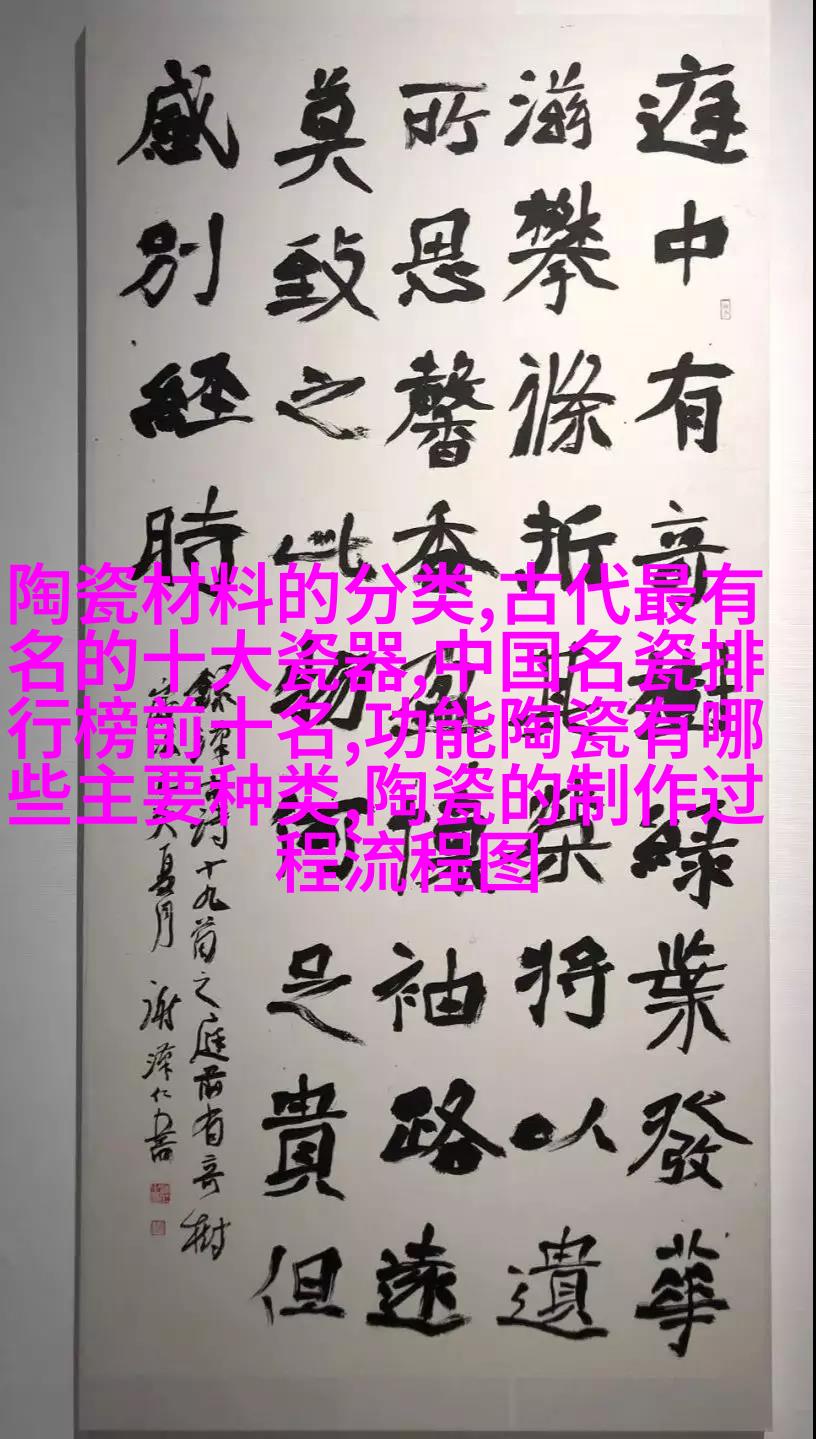 庭中有奇樹綠葉發華
滋攀條折其榮將以遺
所思馨香盈懷袖路遠
莫致之此物何足貴但
感別經時
錄漢古詩十九首之庭前有奇樹
夏月 謝澤仁書
陶瓷材料的分类,古代最有
名的十大瓷器,中国名瓷排
行榜前十名,功能陶瓷有哪
些主要种类,陶瓷的制作过
程流程图